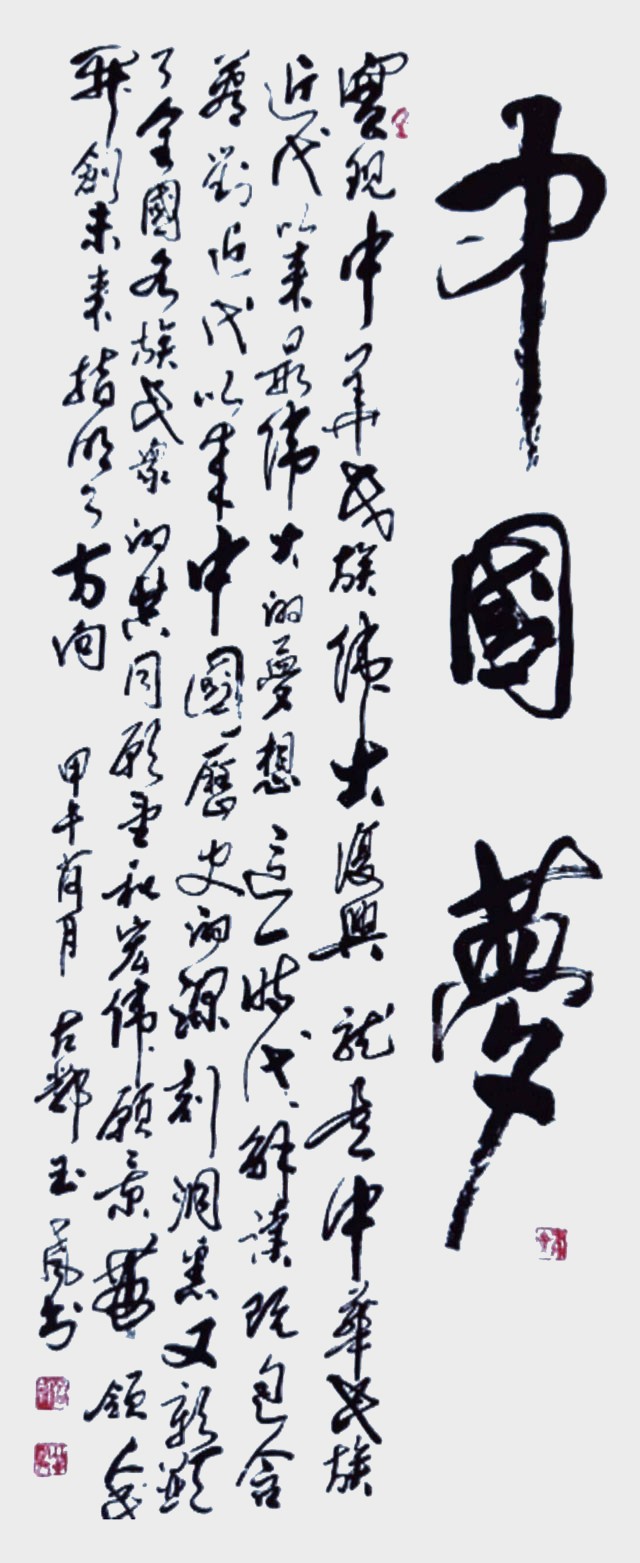 中國夢
實現中華民族偉大復興就是中華民族
近代以来最偉大的夢想這一時代解讀既包含
着對近代以来中國歷史的深刻洞悉又彰顯
了全國各族民衆的共同願望和宏偉願景爲領人民
開創未来指明了方向 甲午荷月 古鄴玉鳳书